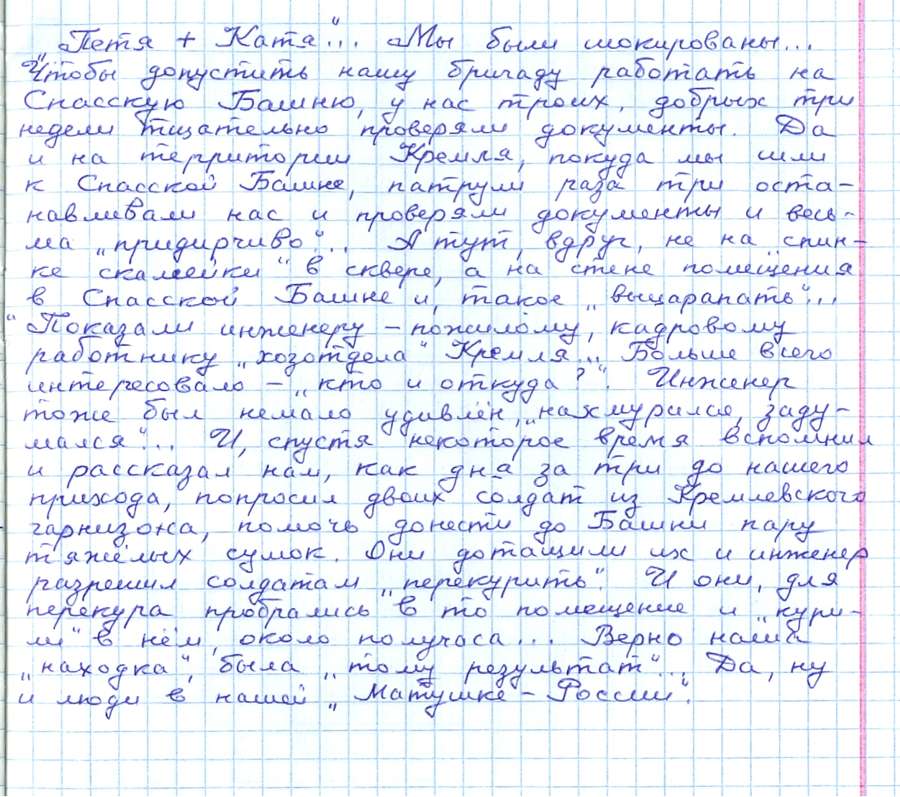 „Петя + Катя"... Мы были шокированы...
Чтобы допустить нашу бригаду работать на
Спасскую Башню, у нас троих, добрых три
недели тщательно проверяли документы. Да
и на территории Кремля, покуда мы шли
к Спасской Башне, патрули раза три оста-
навливали нас и проверяли документы и весь-
ма „придирчиво"... А тут, вдруг, не на спин-
ке скамейки" в сквере, а на стене помещения
в Спасской Башне и, такое „выцарапать"...
"Показали инженеру – пожилому, кадровому
работнику „хозотдела" Кремля... Больше всего
интересовало – „кто и откуда?". Инженер
тоже был немало удивлён, „нахмурился, заду-
мался"... И, спустя некоторое время вспомнил
и рассказал нам, как дня за три до нашего
прихода, попросил двоих солдат из Кремлевского
гарнизона, помочь донести до Башни пару
тяжёлых сумок. Они дотащили их и инженер
разрешил солдатам „перекурить". И они, для
перекура пробрались в то помещение и „кури-
ли" в нём, около получаса... Верно наша
„находка", была „тому результат"... Да, ну
и люди в нашей „Матушке – России".